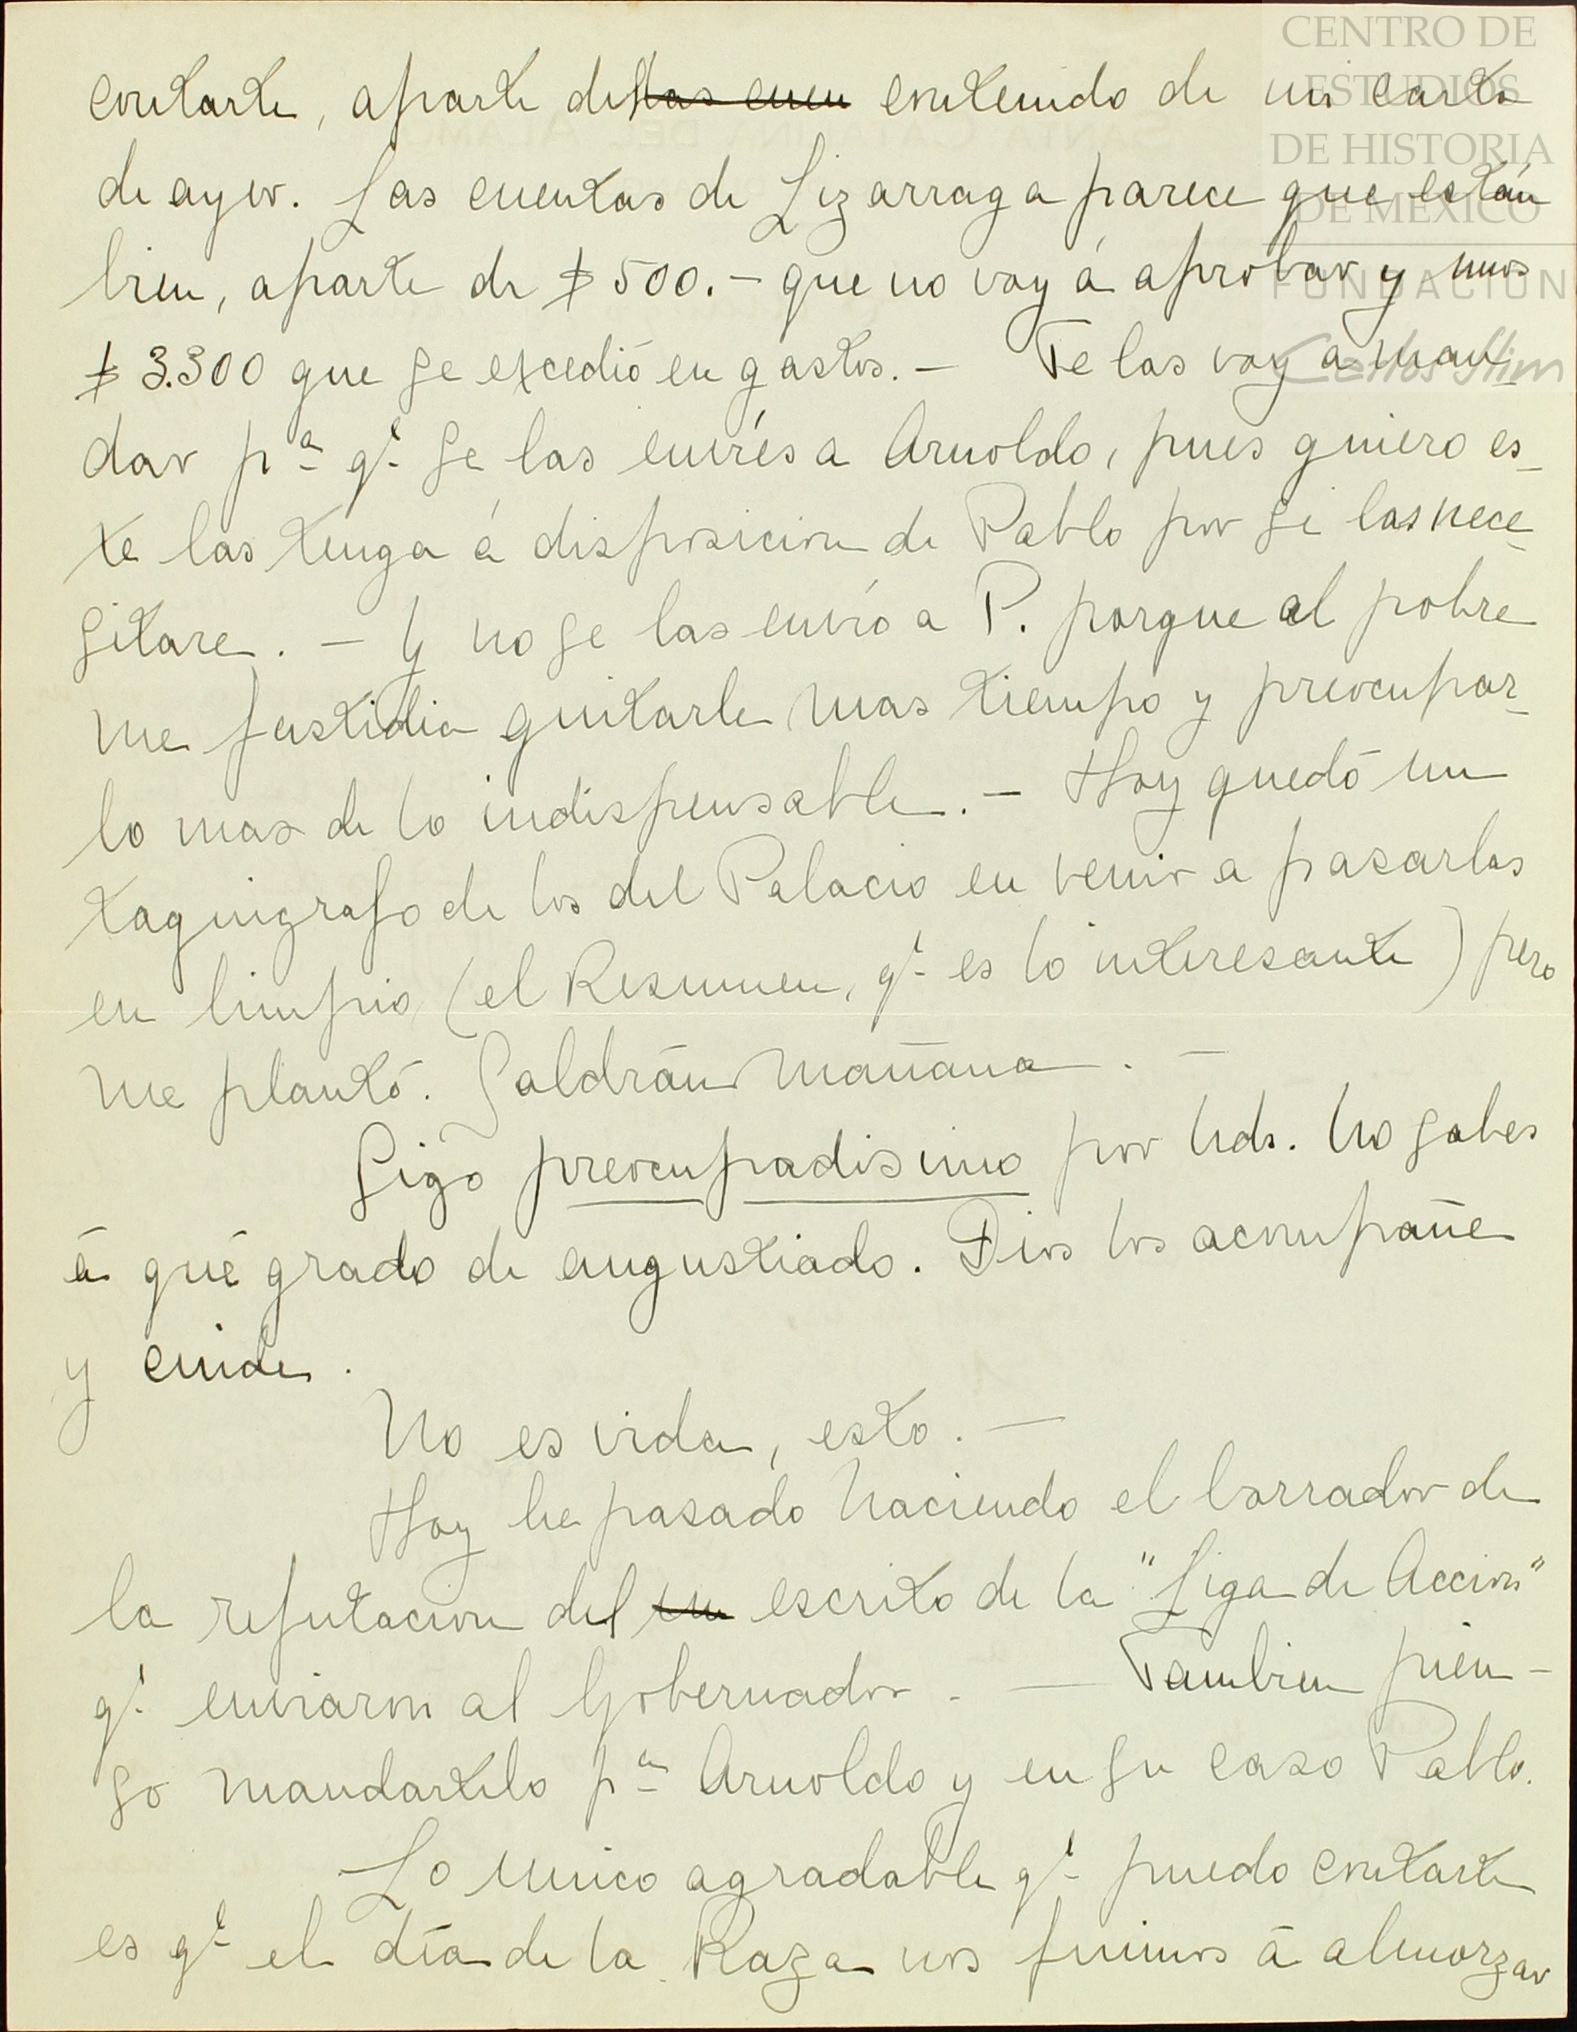 CENTRO DE
ESTUDIOS
DE HISTORIA
DE MEXICO
FUNDACION
Carlos Slim
contarte, aparte del las cuen contenido de mi carta
de ayer. Las cuentas de Lizarraga parece que están
bien, aparte de $500.- que no voy á aprobar y unos
$3.300 que se excedió en gastos. - Te las voy a man-
dar pª. qᵉ. se las envíes a Arnoldo, pues quiero es-
te las tenga á disposicion de Pablo por si las nece-
sitare. - Y no se las envío a P. porque al pobre
me fastidia quitarle mas tiempo y preocupar-
lo mas de lo indispensable. - Hoy quedó un
taquigrafo de los del Palacio en venir a pasarlas
en limpio (el Resumen, qᵉ. es lo interesante) pero
me plantó. Saldrán mañana. -
Sigo preocupadisimo por Uds. No sabes
á qué grado de angustiado. Dios los acompañe
y cuide.
No es vida, esto. -
Hoy he pasado haciendo el borrador de
la refutacion del un escrito de la "Liga de Accion"
qᵉ. enviaron al Gobernador. - Tambien pien-
so mandartelo pª. Arnoldo y en su caso Pablo.
Lo unico agradable qᵉ. puedo contarte
es qᵉ. el día de la Raza nos fuimos á almorzar